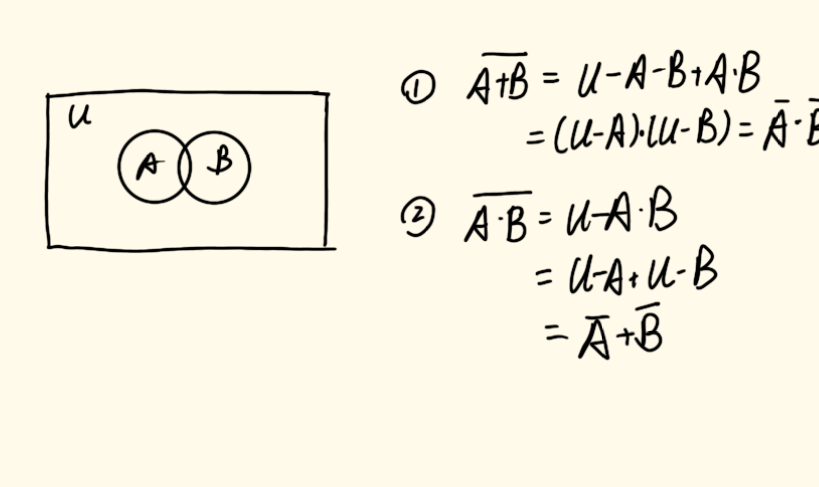 U
A B
① \overline{A+B} = U-A-B+A·B
= (U-A)·(U-B) = \overline{A}·\overline{B}
② \overline{A·B} = U-A·B
= U-A+U-B
= \overline{A}+\overline{B}